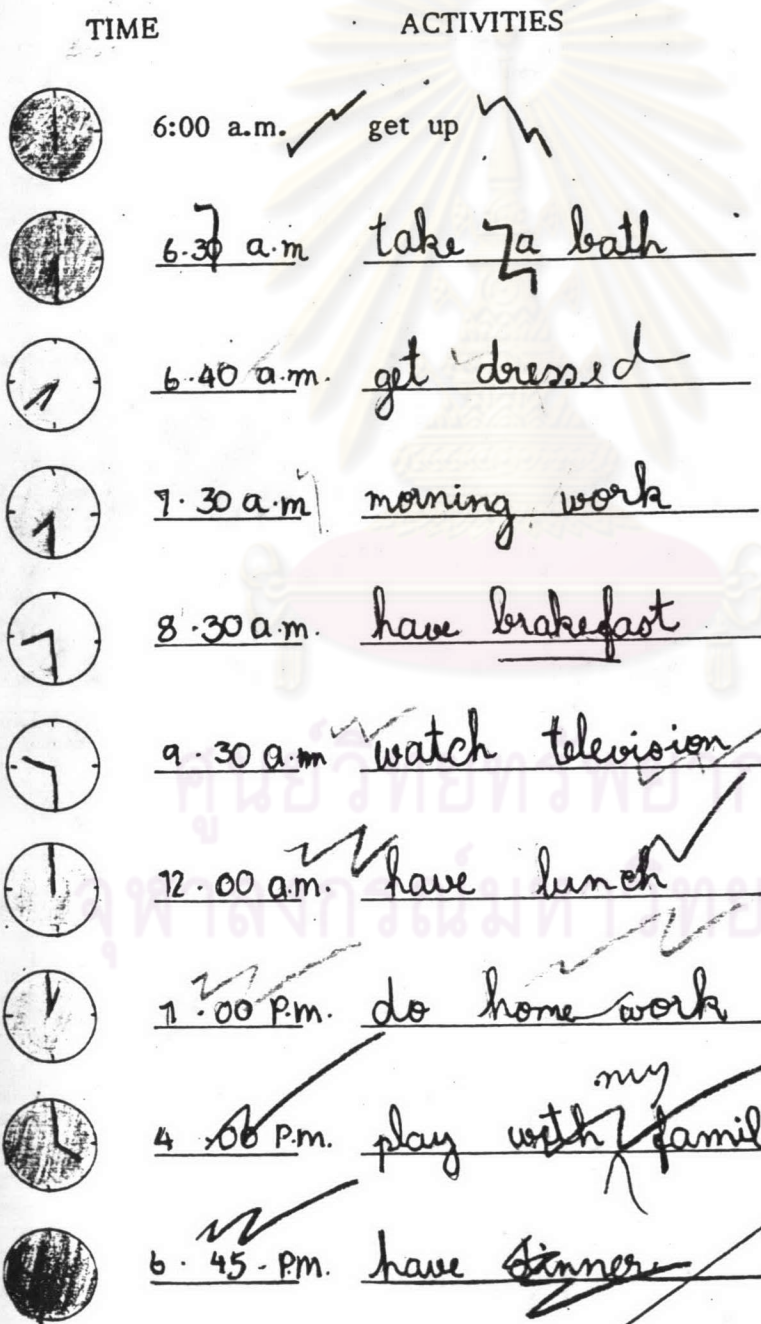 TIME ACTIVITIES
6:00 a.m. get up
6.30 a.m take a bath
6.40 a.m. get dressed
7.30 a.m morning work
8.30 a.m. have brakefast
9.30 a.m watch television
ศูนย์วิทยทรัพยาก
12.00 a.m. have lunch
จุฬาลงกรณ์มหาวิทย
1.00 P.m. do home work
my
4.00 P.m. play with famil
6.45-P.m. have dinner